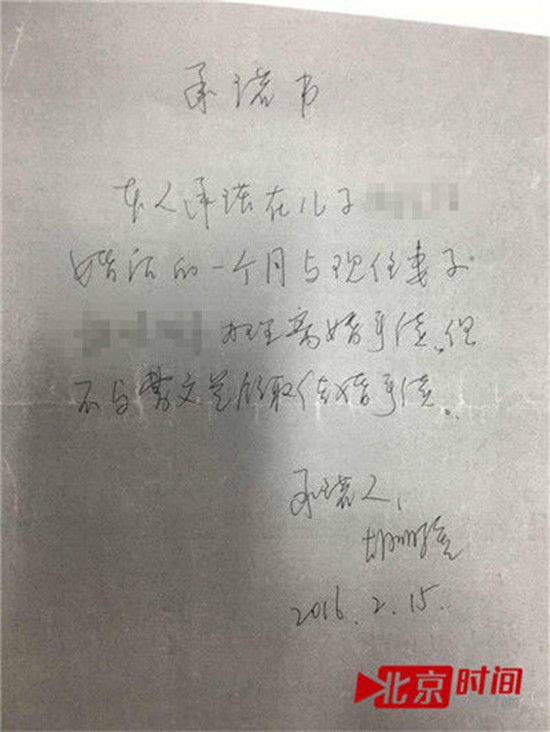 承诺书
本人承诺在儿子
婚后的一个月与现任妻子
办理离婚手续，但
不与曹文兰领取结婚手续。
承诺人：
2016.2.15.
北京时间